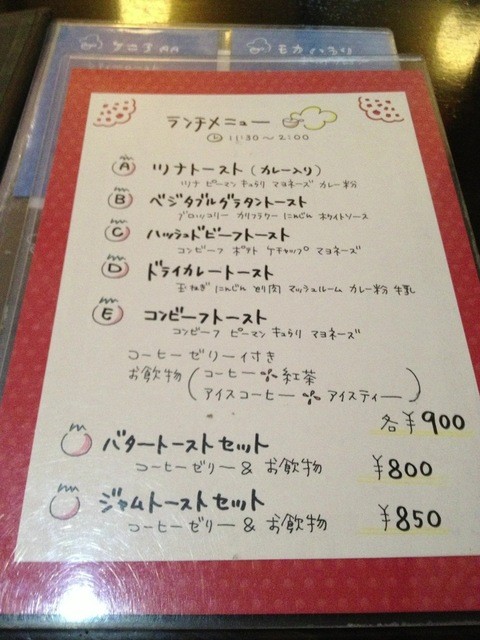 ランチメニュー
11:30～2:00
A ツナトースト(カレー入り)
ツナ ピーマン キュウリ マヨネーズ カレー粉
B ベジタブルグラタントースト
ブロッコリー カリフラワー にんじん ホワイトソース
C ハッシュドビーフトースト
コンビーフ ポテト ケチャップ マヨネーズ
D ドライカレートースト
玉ねぎ にんじん とり肉 マッシュルーム カレー粉 牛乳
E コンビーフトースト
コンビーフ ピーマン キュウリ マヨネーズ
コーヒーゼリー付き
お飲物(コーヒー 紅茶
アイスコーヒー アイスティー)
各¥900
バタートーストセット
コーヒーゼリー & お飲物 ¥800
ジャムトーストセット
コーヒーゼリー & お飲物 ¥850